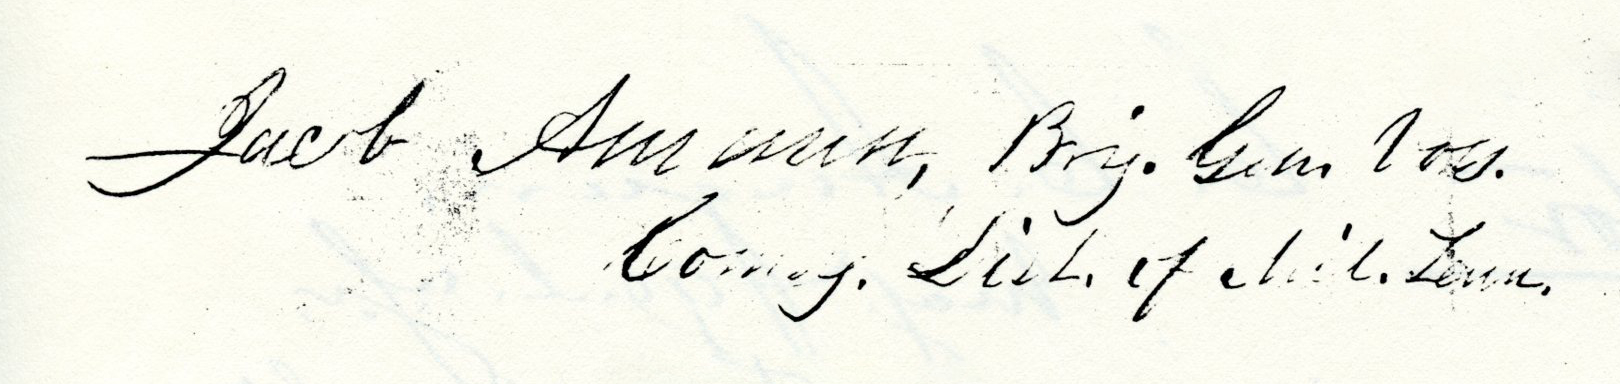 Jacob Ammen, Brig. Gen. Vols.
Comdg. Dist. of Mid. Tenn.